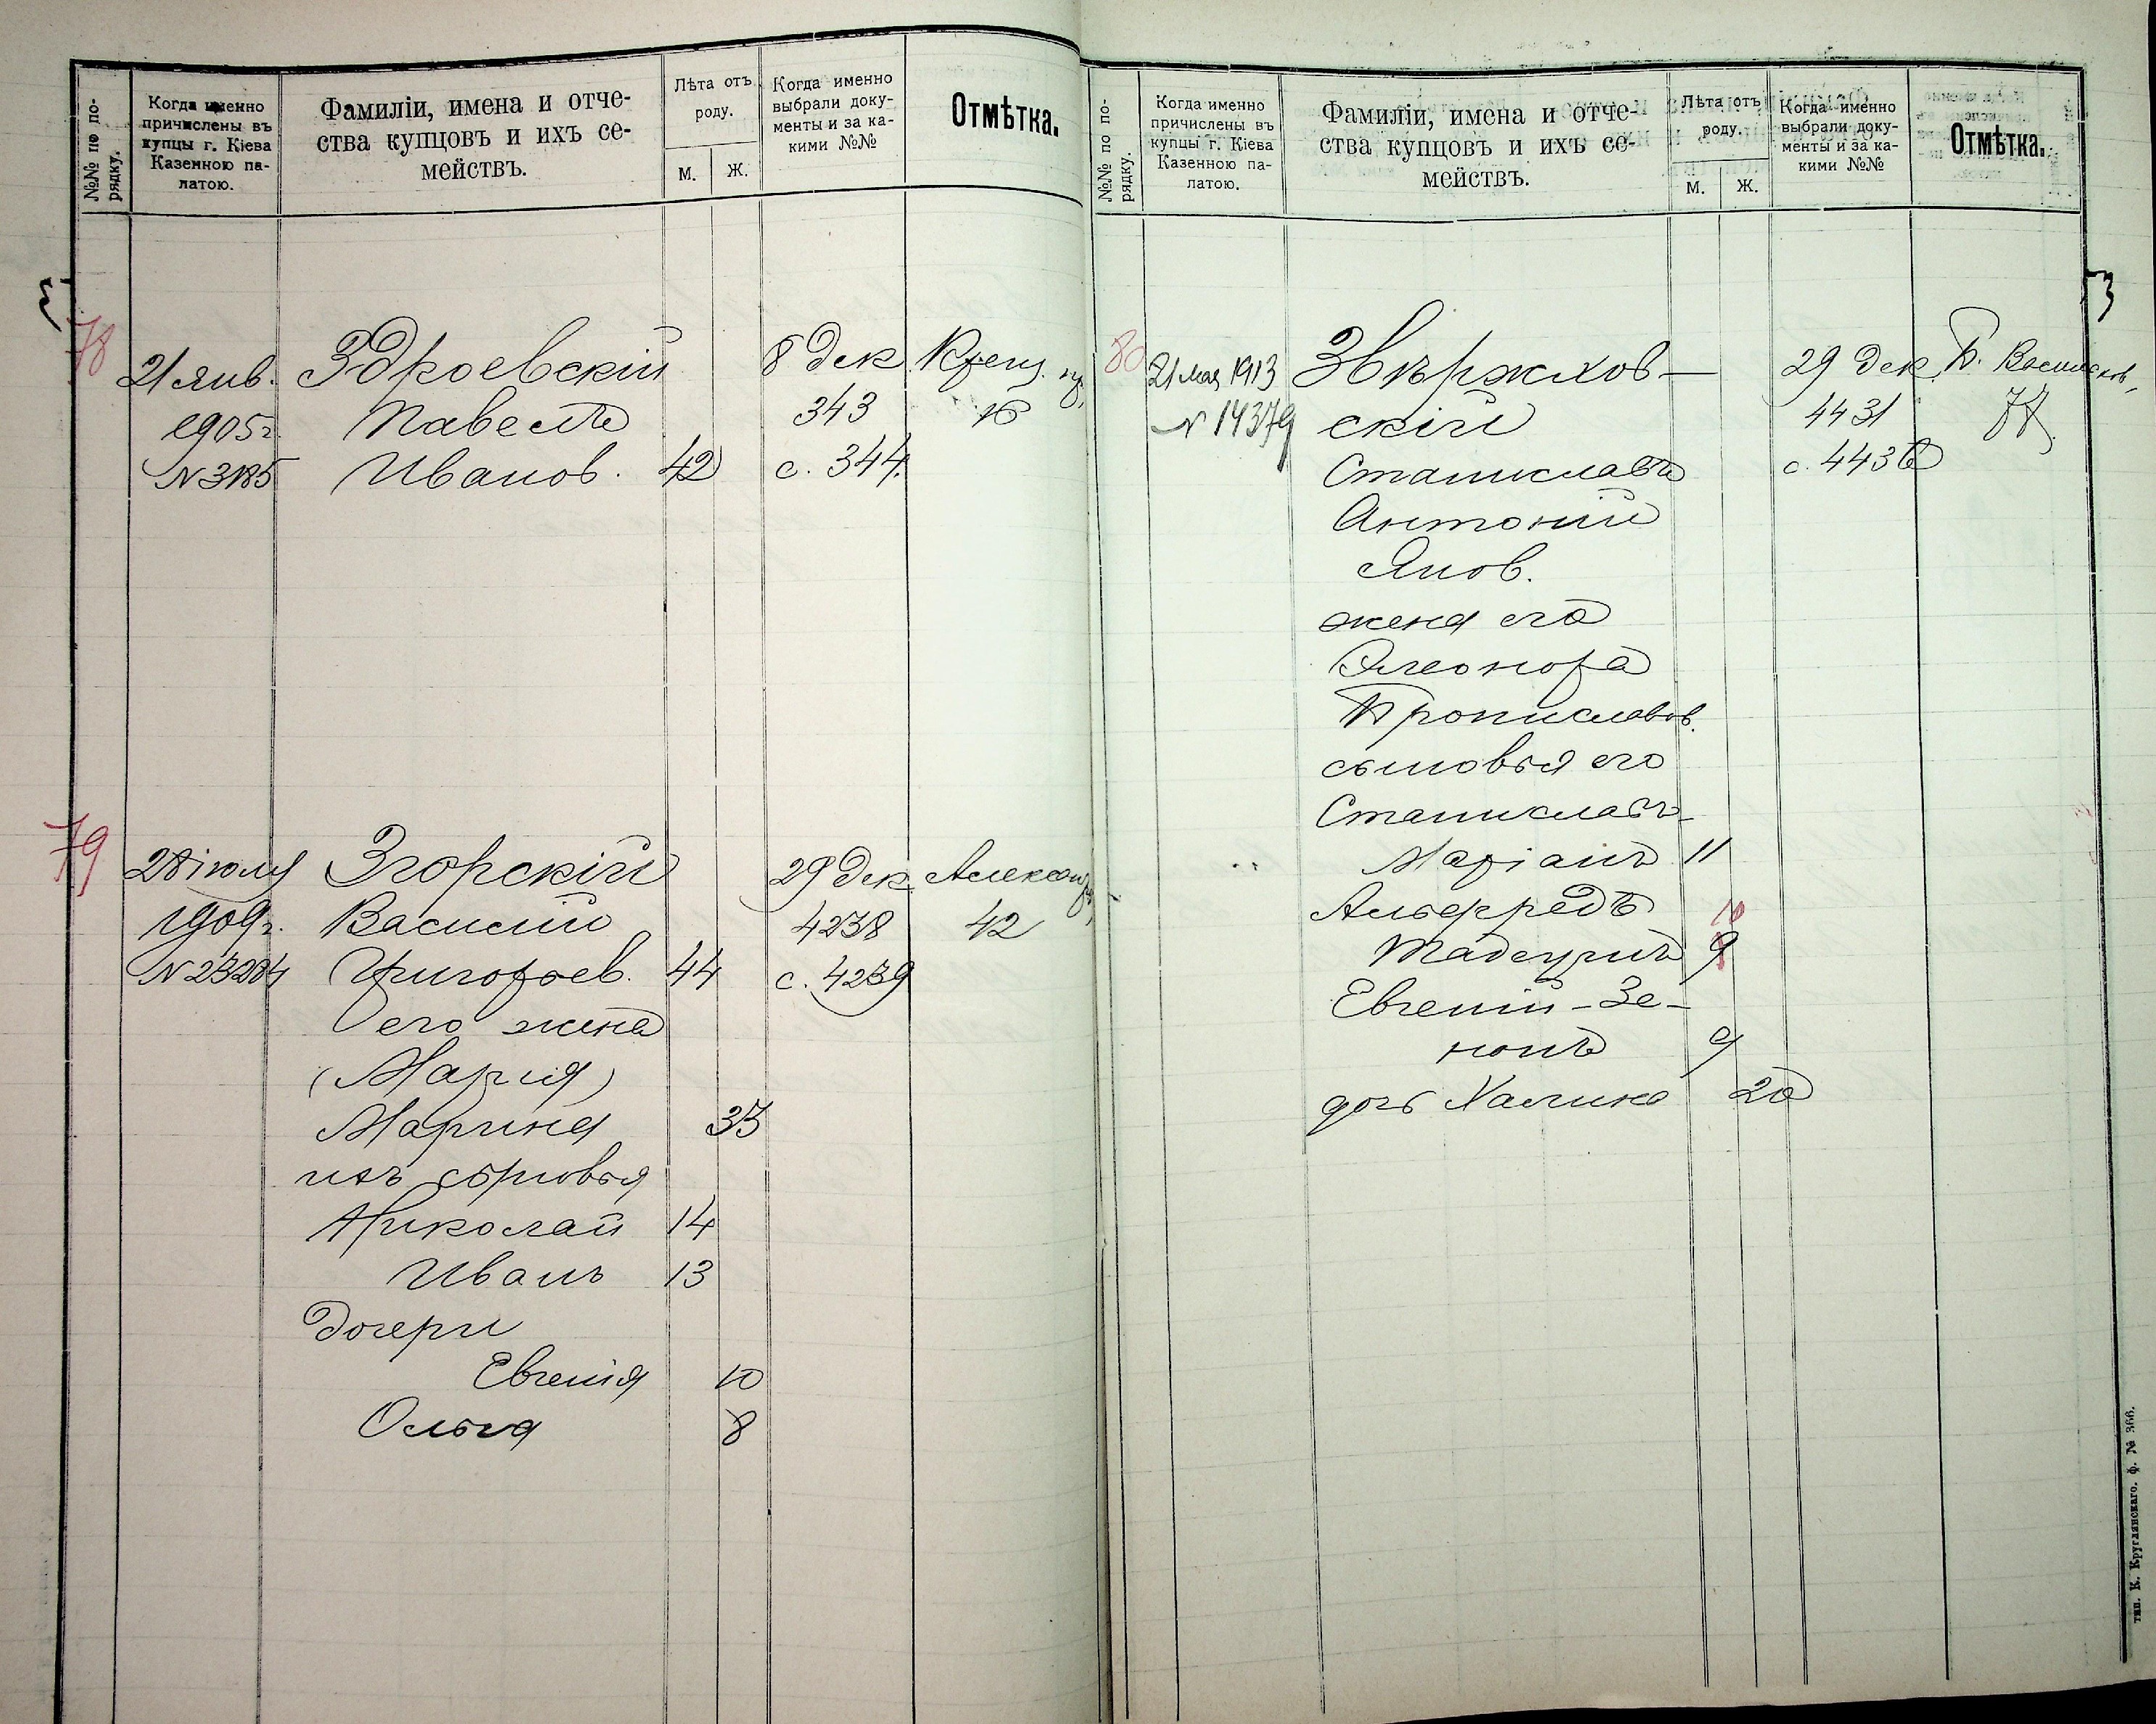 №№ по по-
рядку.
Когда именно
причислены въ
купцы г. Кіева
Казенною па-
латою.
Фамиліи, имена и отче-
ства купцовъ и ихъ се-
мействъ.
Лѣта отъ
роду.
М.
Ж.
Когда именно
выбрали доку-
менты и за ка-
кими №№
Отмѣтка.
78
21 янв.
1905 г.
N 3185
Здроевскій
Павелъ
Иванов. 42
8 Дек
343
с. 344.
Крещ.
16
79
1909 г.
Згорскій
Василій
Григорьев. 44
его жена
(Марія)
Марина
ихъ сыновья
Николай 14
Иванъ 13
Дочери
Евгенія 10
Ольга 8
29 Дек.
4238
с. 4239
42
№№ по по-
рядку.
Когда именно
причислены въ
купцы г. Кіева
Казенною па-
латою.
Фамиліи, имена и отче-
ства купцовъ и ихъ се-
мействъ.
Лѣта отъ
роду.
М.
Ж.
Когда именно
выбрали доку-
менты и за ка-
кими №№
Отмѣтка.
80
21 мая 1913
N 14379
Звѣржхов-
скій
Станиславъ
Антоній
Янов.
жена его
Элеонора
Брониславов.
сыновья его
Станиславъ
Маріанъ 11
Альфредъ
Тадеушъ 9
Евгеній-Зе-
нонъ
дочь Халина 20
29 Дек.
4431
Б. Васильков.
тип. К. Круглянскаго. ф. № 366.